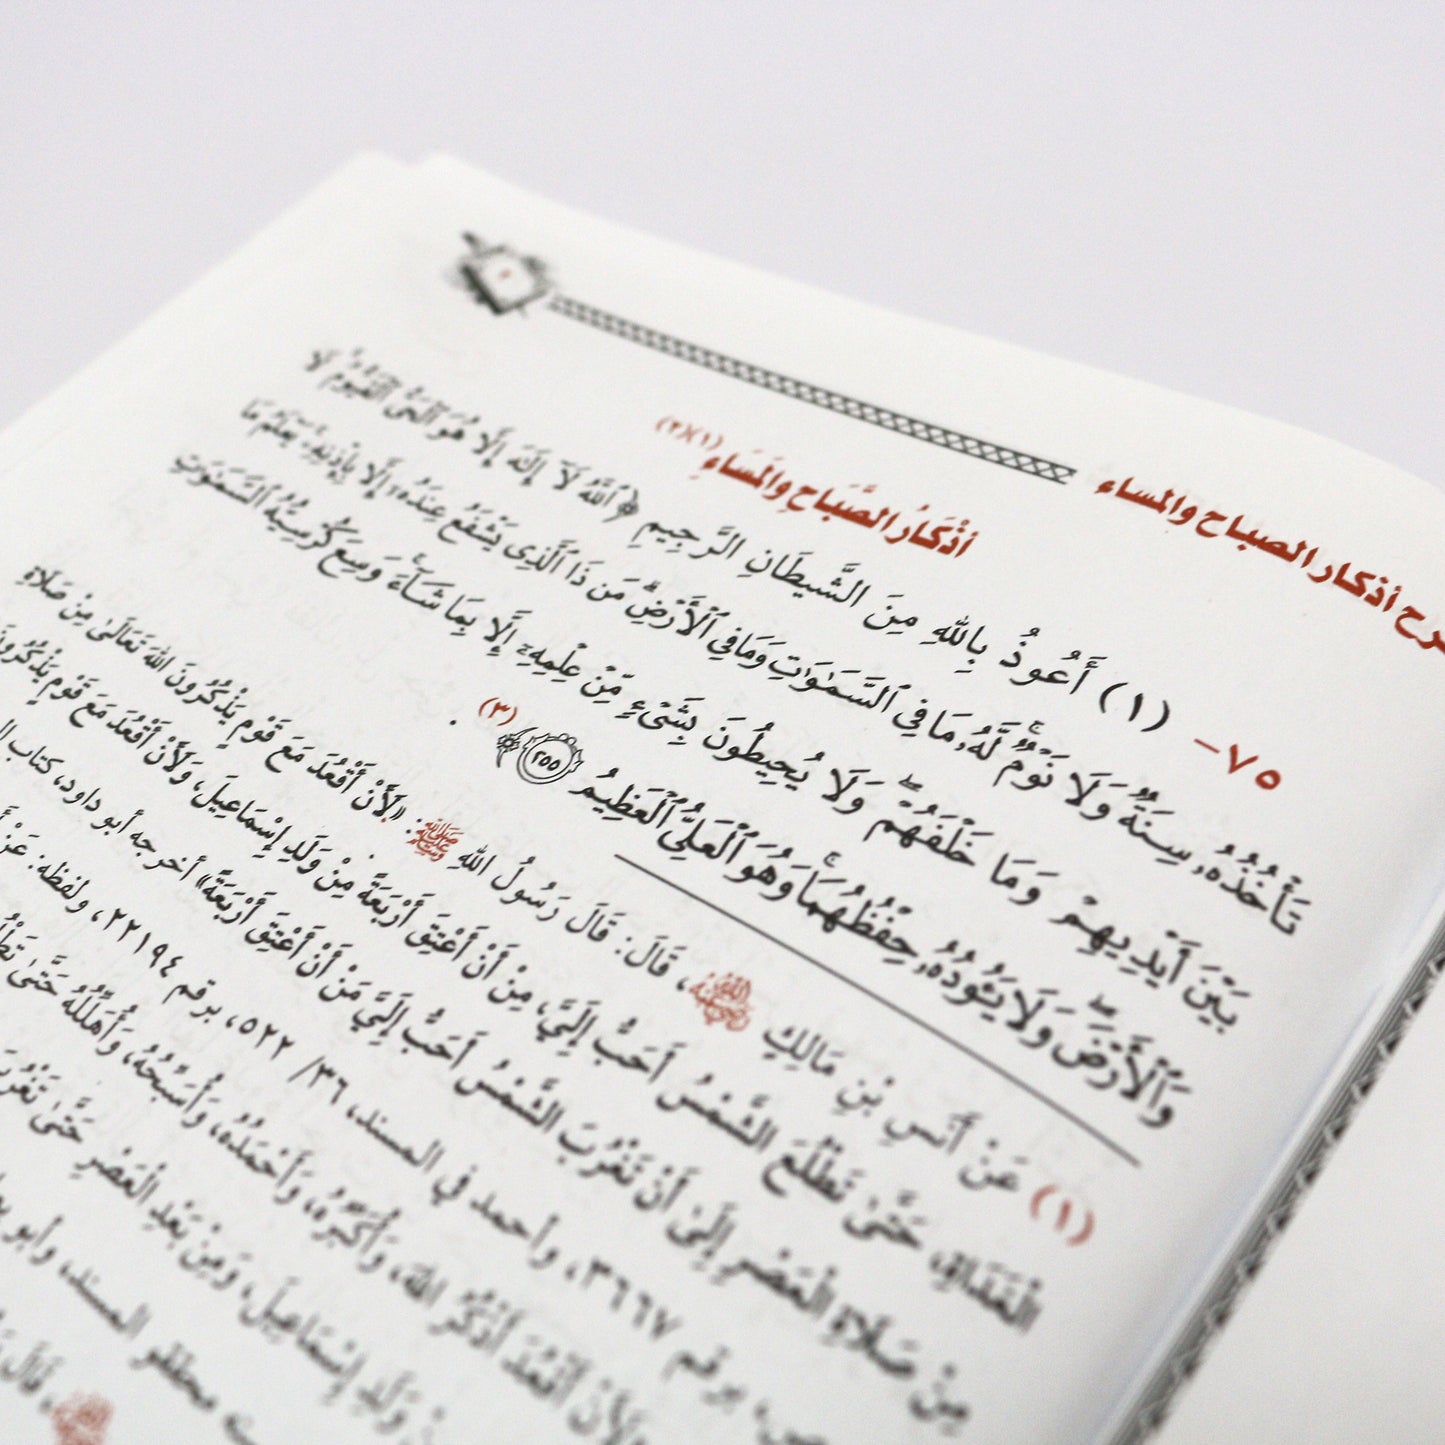 شرح أذكار الصباح والمساء
أَذْكَارُ الصَّبَاحِ وَالمَسَاءِ(١)(٢)
٧٥- (١) أَعُوذُ بِاللهِ مِنَ الشَّيطَانِ الرَّجِيمِ ﴿ٱللَّهُ لَآ إِلَٰهَ إِلَّا هُوَ ٱلْحَىُّ ٱلْقَيُّومُ لَا
تَأْخُذُهُۥ سِنَةٌ وَلَا نَوْمٌ لَّهُۥ مَا فِي ٱلسَّمَٰوَٰتِ وَمَا فِي ٱلْأَرْضِ مَن ذَا ٱلَّذِى يَشْفَعُ عِندَهُۥٓ إِلَّا بِإِذْنِهِۦ يَعْلَمُ مَا
بَيْنَ أَيْدِيهِمْ وَمَا خَلْفَهُمْ وَلَا يُحِيطُونَ بِشَىْءٍ مِّنْ عِلْمِهِۦٓ إِلَّا بِمَا شَآءَ وَسِعَ كُرْسِيُّهُ ٱلسَّمَٰوَٰتِ
وَٱلْأَرْضَ وَلَا يَـُٔودُهُۥ حِفْظُهُمَا وَهُوَ ٱلْعَلِىُّ ٱلْعَظِيمُ ٢٥٥﴾(٣).
(١) عَنْ أَنَسِ بْنِ مَالِكٍ رضي الله عنه، قَالَ: قَالَ رَسُولُ اللهِ ﷺ: «لَأَنْ أَقْعُدَ مَعَ قَوْمٍ يَذْكُرُونَ اللهَ تَعَالَىٰ مِنْ صَلَاةِ
الْغَدَاةِ، حَتَّىٰ تَطْلُعَ الشَّمْسُ أَحَبُّ إِلَيَّ، مِنْ أَنْ أُعْتِقَ أَرْبَعَةً مِنْ وَلَدِ إِسْمَاعِيلَ، وَلَأَنْ أَقْعُدَ مَعَ قَوْمٍ يَذْكُرُونَ
مِنْ صَلَاةِ الْعَصْرِ إِلَىٰ أَنْ تَغْرُبَ الشَّمْسُ أَحَبُّ إِلَيَّ مَنْ أَنْ أُعْتِقَ أَرْبَعَةً» أخرجه أبو داود، كتاب
برقم ٣٦٦٧، وأحمد في المسند، ٣٦/ ٥٢٢، برقم ٢٢١٩٤، ولفظه:
وَلَأَنْ أَقْعُدَ أَذْكُرُ اللهَ، وَأُكَبِّرُهُ، وَأَحْمَدُهُ، وَأُسَبِّحُهُ، وَأُهَلِّلُهُ حَتَّىٰ
وَلَدِ إِسْمَاعِيلَ، وَمِنْ بَعْدِ الْعَصْرِ حَتَّىٰ
المسند، وأبو
قَالَ